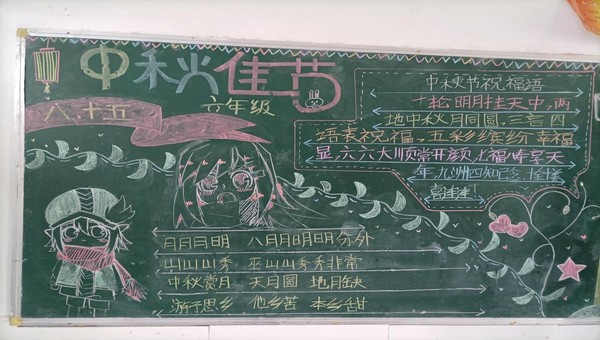 中秋佳节
六年级
八.十五
中秋节祝福语
一轮明月挂天中,两
地中秋月同圆,三言四
语表祝福,五彩缤纷幸福
显,六六大顺常开颜,七福
年,九洲四
月月月明 八月月明明分外
山山山秀 巫山山秀秀非常
中秋赏月 天月圆 地月缺
游子思乡 他乡苦 本乡甜